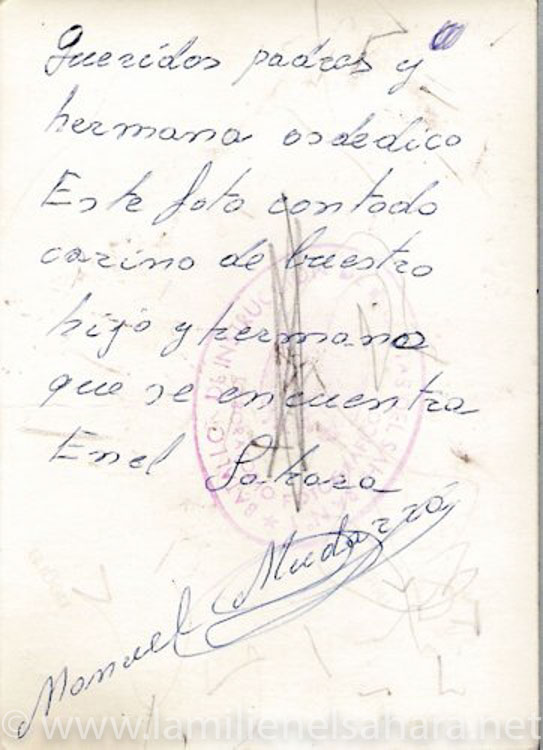 Queridos padres y
hermana osdedico
Este foto contodo
carino de buestro
hijo y hermano
que se encuentra
Enel Sahara
Manuel Mudarra
BATALLON DE INSTRUC
© www.lamilienelsahara.net